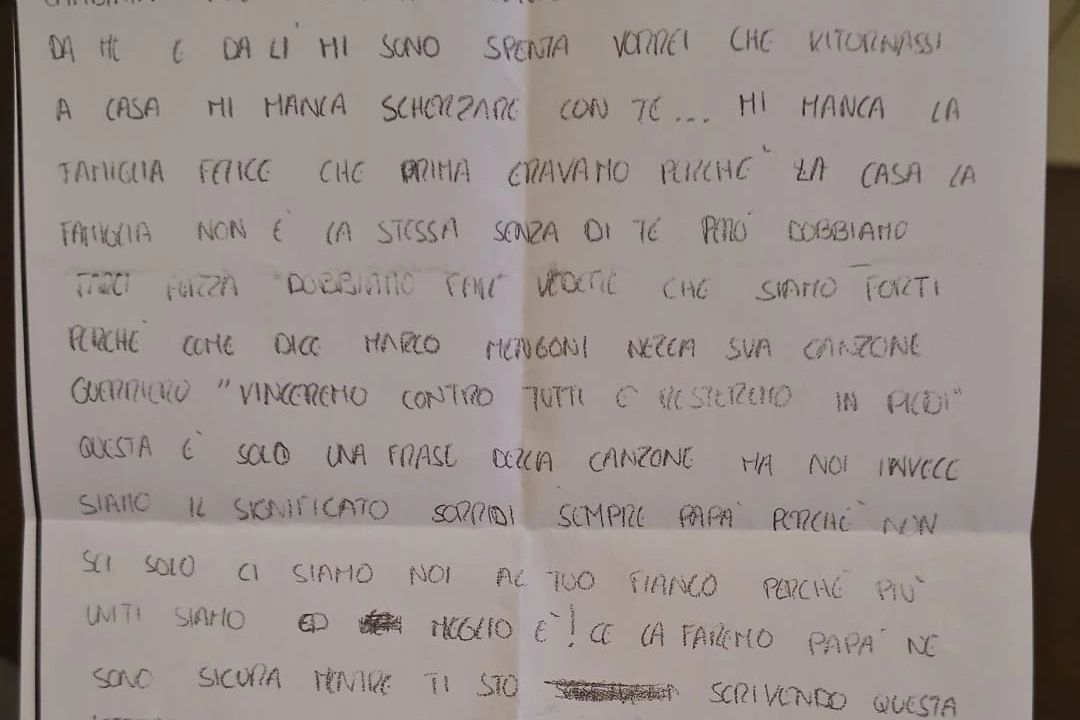 DA ME E DA LÌ MI SONO SPENTA VORREI CHE RITORNASSI
A CASA MI MANCA SCHERZARE CON TE... MI MANCA LA
FAMIGLIA FELICE CHE PRIMA ERAVAMO PERCHÈ LA CASA LA
FAMIGLIA NON È LA STESSA SENZA DI TE PERÒ DOBBIAMO
FARCI FORZA DOBBIAMO FAR VEDERE CHE SIAMO FORTI
PERCHÈ COME DICE MARCO MENGONI NELLA SUA CANZONE
GUERRIERO "VINCEREMO CONTRO TUTTI E RESTEREMO IN PIEDI"
QUESTA È SOLO UNA FRASE DELLA CANZONE MA NOI INVECE
SIAMO IL SIGNIFICATO SORRIDI SEMPRE PAPÀ PERCHÈ NON
SEI SOLO CI SIAMO NOI AL TUO FIANCO PERCHÈ PIÙ
UNITI SIAMO ED MEGLIO È! CE LA FAREMO PAPÀ NE
SONO SICURA MENTRE TI STO SCRIVENDO QUESTA